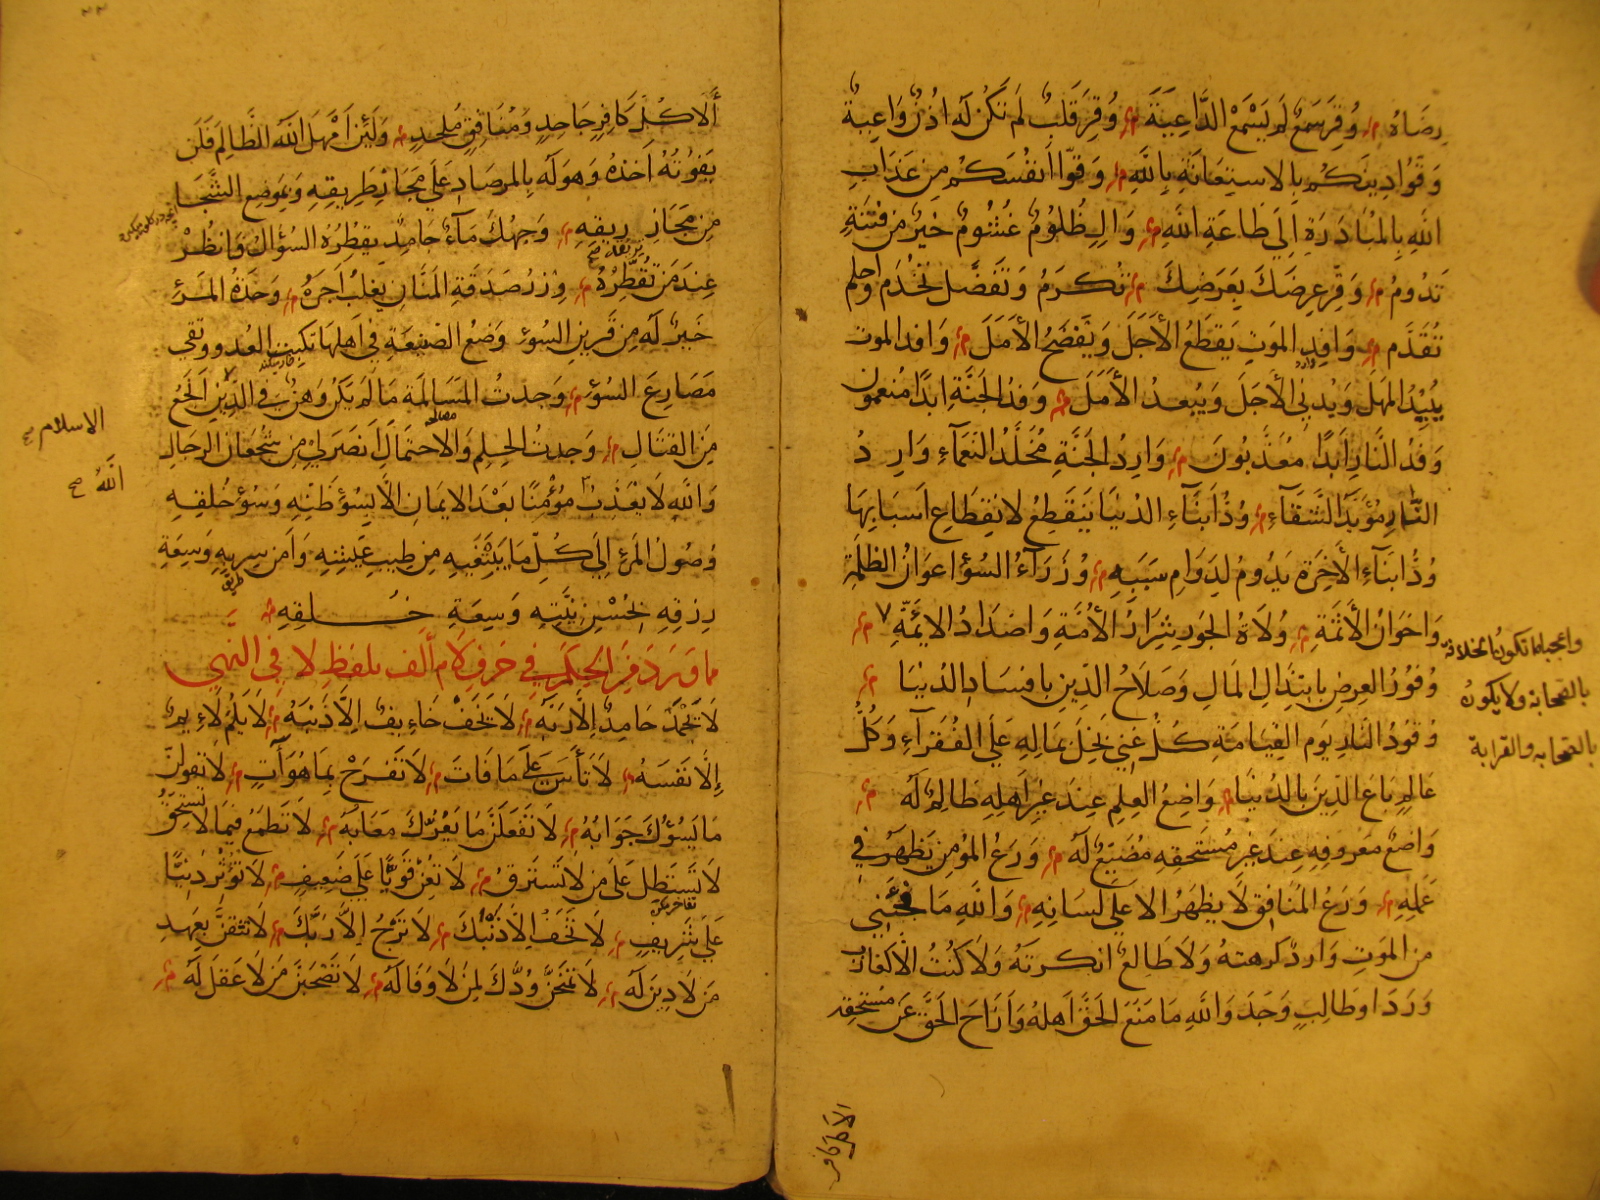 رِضَاهُ وُقِرَ سَمْعٌ لَم يَسْمَعْ الدَّاعِيَةَ وُقِرَ قَلبٌ لَم تَكُنْ لَه اُذُنٌ وَاعِيَةٌ
وَقُوا دِينَكُم بِالاستِعَانَةِ بِاللهِ وَقُوا اَنفُسَكُم مِن عَذَابِ
اللهِ بِالمُبَادَرَةِ اِلَى طَاعَةِ اللهِ وَالٍ ظُلُومٌ غُشُومٌ خَيرٌ مِن فِتنَةٍ
تَدُومُ وَقِّر عِرضَكَ بِعَرَضِكَ تُكرَمُ وَتَفَضَّل تُخدَم وَاحلم
تُقَدَّم وَافِدِ المَوتِ يَقطَعُ الاَجَلَ وَيَفضَحُ الاَمَلَ وَافد الموت
وارد
يُبِيدُ المَهَلَ وَيُدنِي الاَجَلَ وَيُبعدُ الاَمَلَ وَفدُ الجَنَّةِ ابدًا مُنعمون
وَفدُ النَّارِ اَبَدًا مُعَذَّبُونَ وَارِدُ الجَنَّةِ مُخَلَّدُ النَعمَآءِ وَارِدُ
النَّارِ مُؤَبَّدُ الشَّقَآءِ وُدُّ اَبنَآءِ الدُنيَا يَنقَطِعُ لانقِطَاعِ اَسبَابِهَا
وُدُّ ابنَآءِ الاَخِرَةِ يَدُومُ لِدَوامِ سَبَبِهِ وُزَرَآءُ السُوءِ اعوَانُ الظلَمَةِ
وَاخوَانُ الاَثَمَةِ وُلَاةُ الجَورِ شِرَارُ الاُمَّةِ وَاضدَادُ الائِمَّةِ ٧
وُفُورُ العِرضِ بِابتِذَالِ المَالِ وَصَلَاحُ الدِّينِ بِافسَادِ الدُنيَا
وَقُودُ النَّارِ يَوم القِيَامَةِ كُلُّ غَنِيٍّ بَخِلَ بِمَالِهِ عَلَى الفُقَرَآءِ وَكُلُّ
عَالِمٍ بَاعَ الدِّينَ بِالدُنيَا وَاضِعُ العِلمِ عِندَ غَيرِ اَهلِهِ ظَالِمٌ لَهُ
وَاضعُ مَعرُوفِهِ عِندَ غَيرِ مُستَحِقِهِ مُضَيِّعٌ لَهُ وَرَعُ المُؤمِنِ يَظهَرُ فِي
عَمَلِهِ وَرَعُ المُنَافِقِ لَا يَظهَرُ الا عَلَى لِسَانِهِ وَاللهِ مَا فَجَئَنِي
مِن المَوتِ وَارِدٌ كَرِهتهُ وَلَا طَالعٌ انكرتَهُ وَلَا كُنتُ الَّا كقَارب
وَرَدَ او طَالِبٍ وَجَدَ وَاللهِ مَا مَنَعَ الحَقَّ اَهلَهُ وَاَزَاحَ الحَقَّ عَن مُستَحِقه
واعجباه اتكون الخلافة
بالصحابة ولا يكون
بالصحابه والقرابة
الا كل كافر
أَلا كُلُّ كَافِرٍ جَاحِدٍ وَمُنَافِقٍ مُلحِدٍ وَلَئِن اَمهَلَ اللهُ الظَّالِمَ فَلَن
يَفُوتُهُ اَخذُهُ وَهوَ لَهُ بِالمِرصَادِ عَلَى مَجَازِ طَرِيقِهِ وَمَوضِعِ الشَّجَا
مِن مَجَازِ رِيقِهِ وَجهُكَ مَآءٌ جَامِدٌ يقطِرُهُ السُؤالُ وَانظُرْ
عِندَ مَن تُقَطِّرُهُ وِزرُ صَدَقَةِ المَنَّانِ يَغلِبُ اَجرَهُ وَحدَةُ المَرءِ
خَيرٌ لَهُ مِن قَرِينِ السُوءِ وَضعُ الصَنِيعَةِ فِي اَهلِهَا تَكبِتُ العُدو وتقي
مَصَارِعَ السُوءِ وَجدتُ المُسَالَمَةَ مَا لَم يَكُن وَهنٌ فِي الدِّينِ اَنجَعُ
مِنَ القِتَالِ وَجدتُ الحِلمِ وَالاحتِمَالِ اَنصَرَ لِي مِن شُجعَانِ الرِجَالِ
وَاللهِ لَا يُعَذِّبُ مُؤمِنًا بَعدَ الايمَانِ الَّا بِسُوءِ ظَنِّهِ وَسُوءِ خُلقِهِ
وُصُولُ المَرءِ اِلَى كُلِّ مَا يَبتَغِيهِ مِن طِيبِ عَيشِهِ وَاَمنِ سِربِهِ وَسِعَةِ
رِزقِهِ بِحُسْنِ نِيَّتِهِ وَسِعَةِ خُلقِهِ
ما وَرَدَ مِنَ الحِكَمِ فِي حَرفِ لَام أَلَف بلَفظِ لا فِي النَهي
لَا يَحْمَدْ حَامِدٌ اِلَّا رَبَّهُ لَا يَخَفْ خَائِفٌ اِلَّا ذَنبَهُ لَا يَلُم لَائِمٌ
اِلَّا نَفسَهُ لَا تَأسَ عَلَى مَا فَاتَ لَا تَفرَحْ بِمَا هُوَ آتٍ لَا تقولنَّ
مَا يَسُوؤُكَ جَوَابُهُ لَا تَفعَلَنَّ مَا يَعُرُّكَ مَعَابُهُ لَا تَطمَع فِيمَا لا تستحِقُّ
لَا تَستَطِل عَلَى مَن لَا تَستَرِقُّ لَا تُعِن قَوِيًّا عَلَى ضَعِيفٍ لَا تؤثِر دنيًّا
عَلَى شَرِيفٍ لَا تَخَف اِلَّا ذَنْبَكَ لَا تَرْجُ اِلَّا رَبَّكَ لَا تَثقنَّ بِعَهدِ
مَن لَا دِينَ لَهُ لَا تَمنَحَنَّ وُدَّكَ لِمَن لَا وَفَا لَهُ لَا تَصْحَبَنَّ مَن لَا عَقلَ لَهُ
الاسلام صح
اللهُ صح